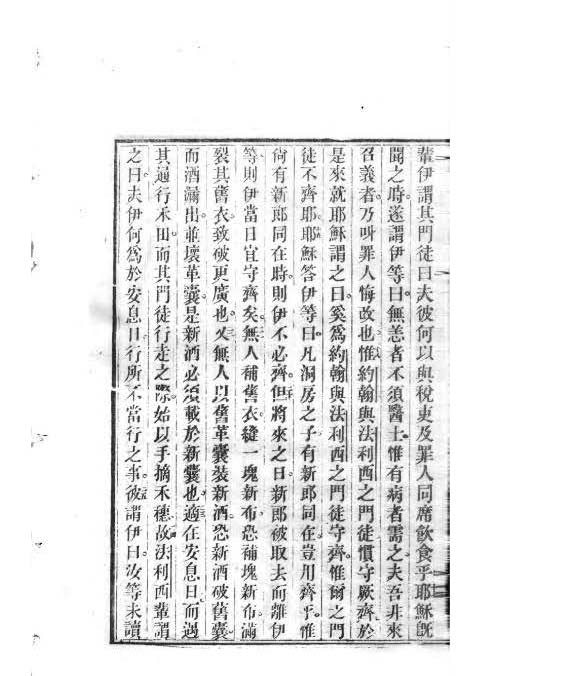 輩伊謂其門徒曰夫彼何以與稅吏及罪人同席飲食乎耶穌旣
聞之時遂謂伊等曰無恙者不須醫士惟有病者需之夫吾非來
召義者乃叫罪人悔改也惟約翰與法利西之門徒慣守厥齊於
是來就耶穌謂之曰奚爲約翰與法利西之門徒守齊惟爾之門
徒不齊耶耶穌答伊等曰凡洞房之子有新郎同在豈用齊乎惟
尙有新郎同在時則伊不必齊但將來之日新郎被取去而離伊
等則伊當日宜守齊矣無人補舊衣縫一塊新布恐補塊新布滿
裂其舊衣致破更廣也又無人以舊革囊裝新酒恐新酒破舊囊
而酒漏出並壞革囊是新酒必須載於新囊也適在安息日而遇
其過行禾田而其門徒行走之際始以手摘禾穗故法利西輩謂
之曰夫伊何爲於安息日行所不當行之事彼謂伊曰汝等未讀